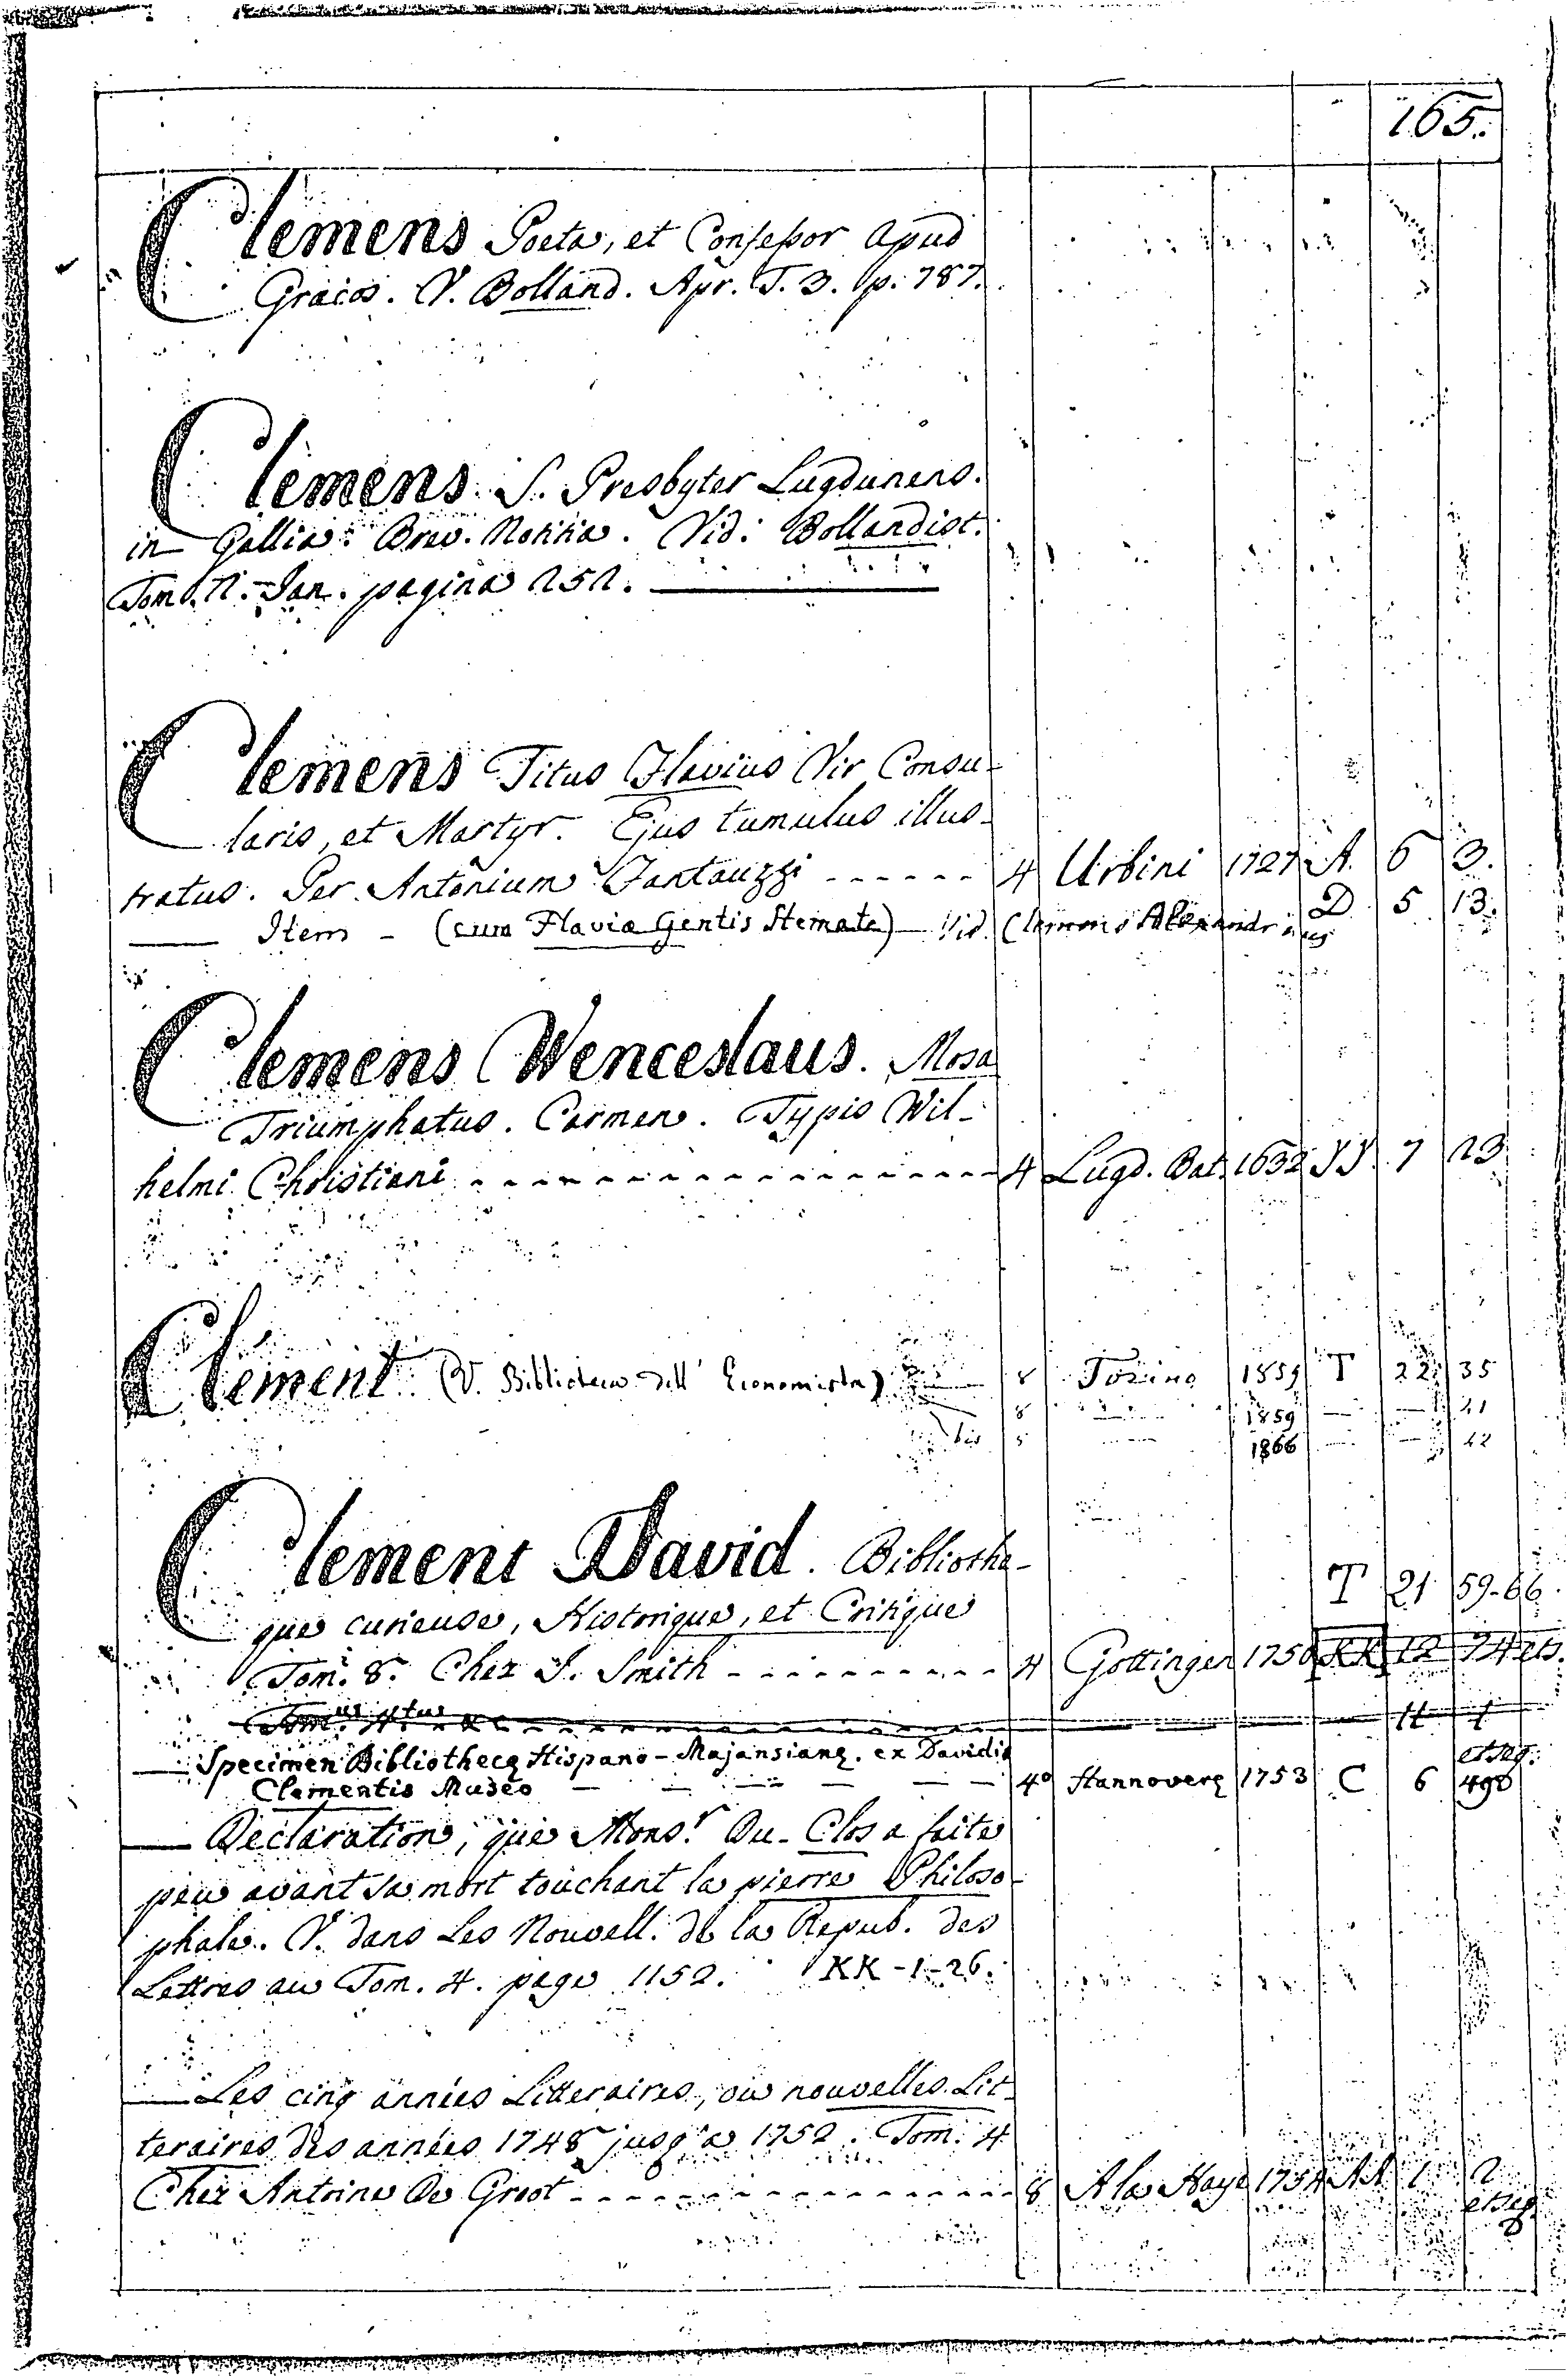 165.
Clemens Poeta, et Confessor apud
Græcos. V. Bolland. Apr. T. 3. p. 787.
Clemens S. Presbyter Lugdunens.
in Gallia. Brev. Notitia. Vid: Bollandist.
Tom. 2. Jan. pagina 252.
Clemens Titus Flavius Vir Consu-
laris, et Martyr. Ejus tumulus illus-
tratus. Per Antonium Fantauzzi ------ 4 Urbini 1727 A. 6 3.
— Item - (cum Flaviæ Gentis Stemate) — Vid. Clemens Alexandrinus D 5 13.
Clemens Wenceslaus. Mosa
Triumphatus. Carmen. Typis Wil-
helmi Christiani ------ 4 Lugd. Bat. 1632 YY 7 23
Clement (V. Biblioteca dell' Economista) 8 Torino 1859 T 22 35
8 — 1859 — —
bis — 1866 — — 42
Clement David. Bibliothe-
que curieuse, Historique, et Critique T 21 59-66
Tom. 8. Chez J. Smith ------ 4 Gottingen 1750 KK 12
Specimen Bibliothecę Hispano-Majansianę. ex Davidis et seq.
Clementis Museo — 4° Hannoverę 1753 C 6 490
— Declaration, que Mons.r Du-Clos a faite
peu avant sa mort touchant la pierre Philoso-
phale. V. dans Les Nouvell. de la Repub. des
Lettres au Tom. 4. page 1152. KK-1-26.
— Les cinq années Litteraires, ou nouvelles Lit-
teraires des années 1748 jusq'a 1752. Tom. 4
Chez Antoine De Groot ------ 8 A la Haye 1754 AA 1 2
et seq.